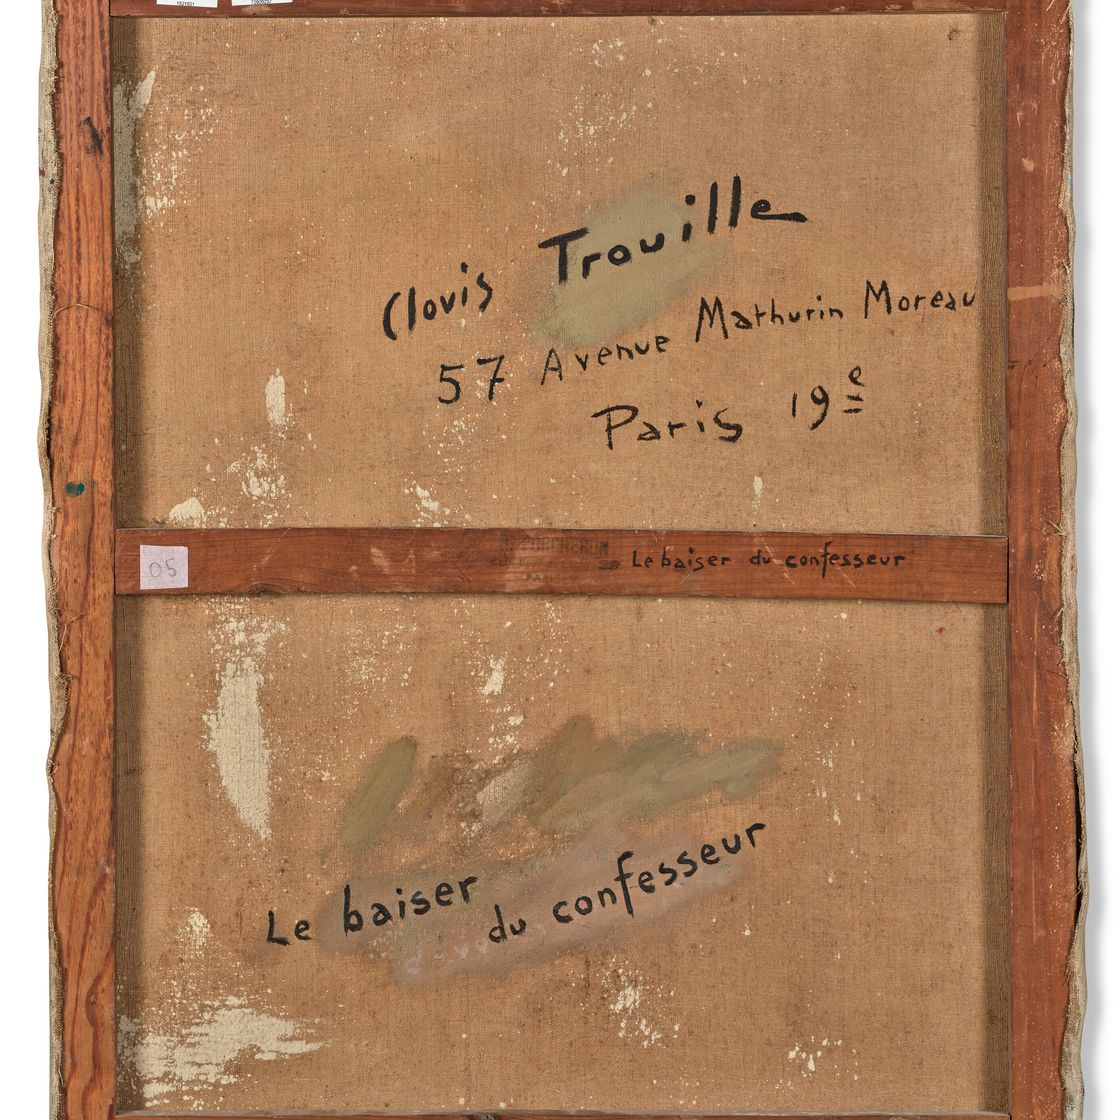 Clovis Trouille
57 Avenue Mathurin Moreau
Paris 19e
05
Le baiser du confesseur
Le baiser
du confesseur